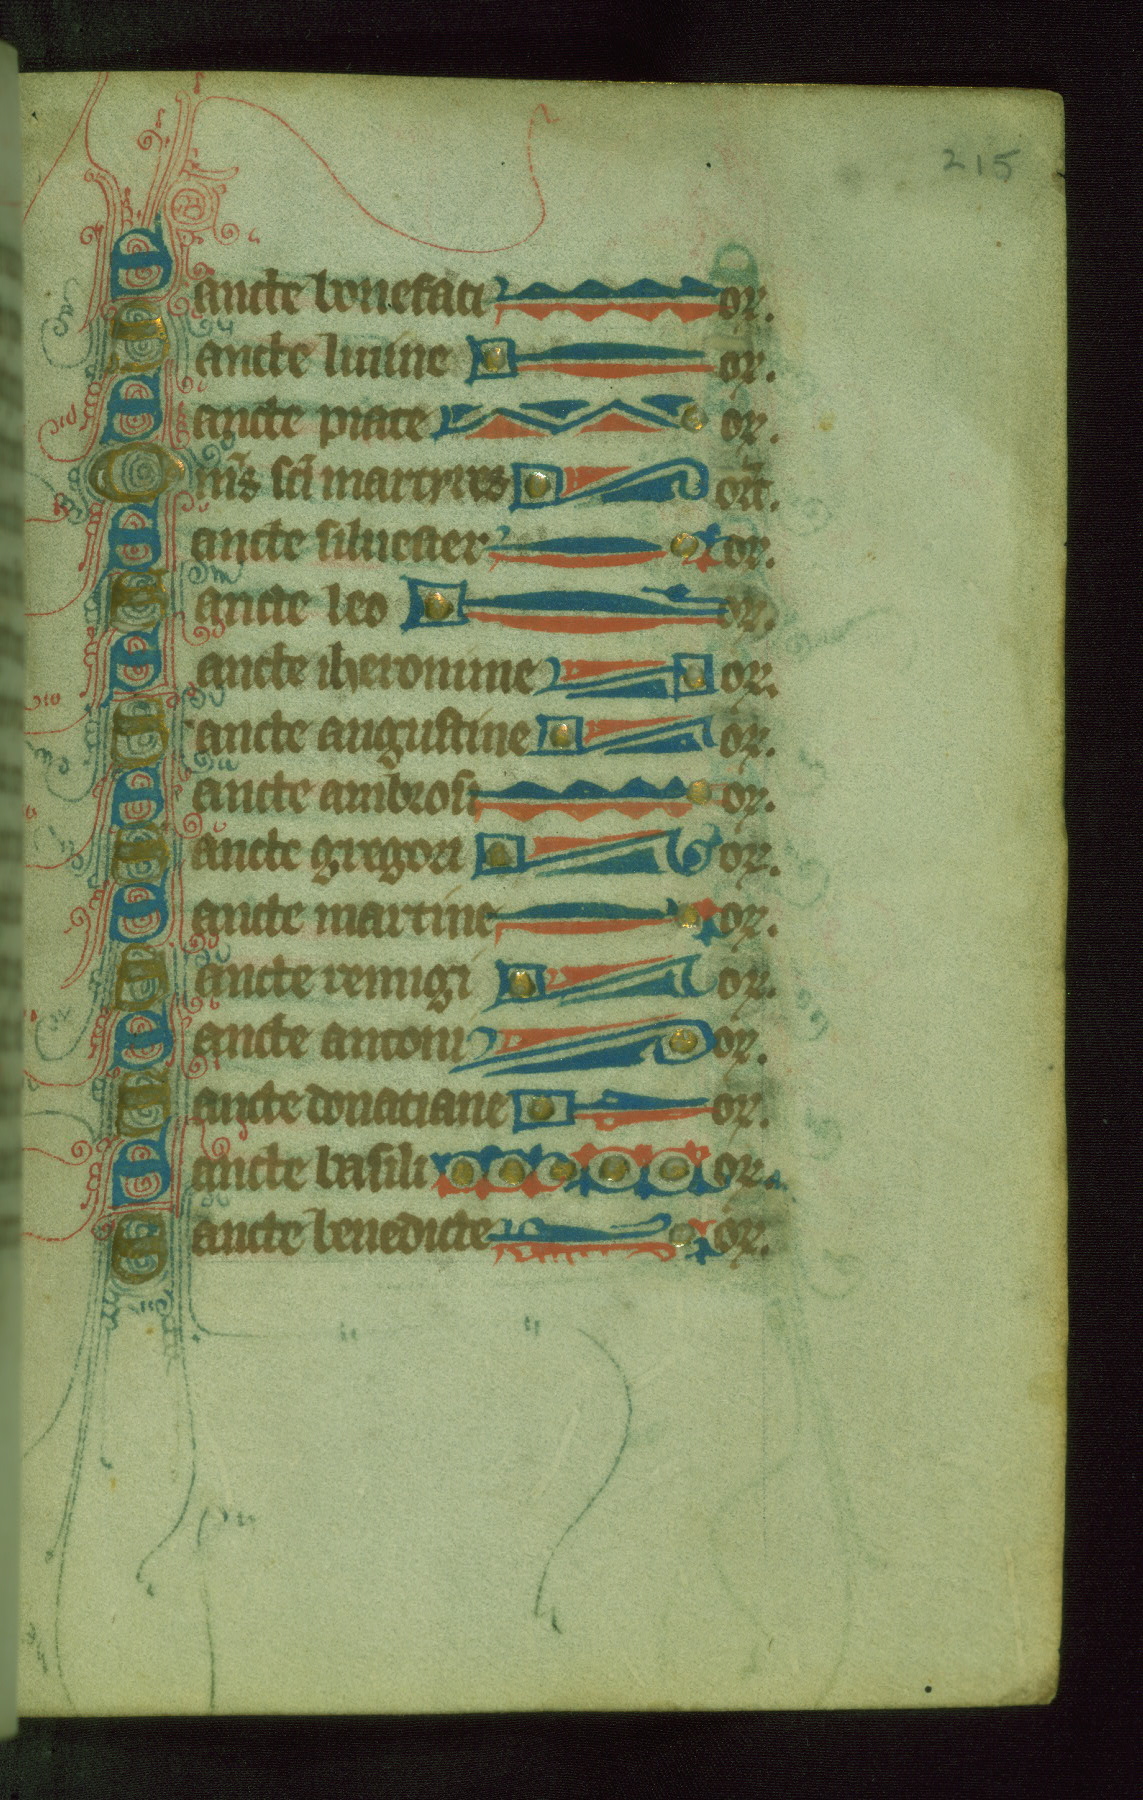 215
Sancte bonefaci or.
Sancte liuine or.
Sancte piate or.
Om̄s sc̄i martyres or̄t.
Sancte siluester or.
Sancte leo or.
Sancte iheronime or.
Sancte augustine or.
Sancte ambrosi or.
Sancte gregori or.
Sancte martine or.
Sancte remigi or.
Sancte antoni or.
Sancte donatiane or.
Sancte basili or.
Sancte benedicte or.